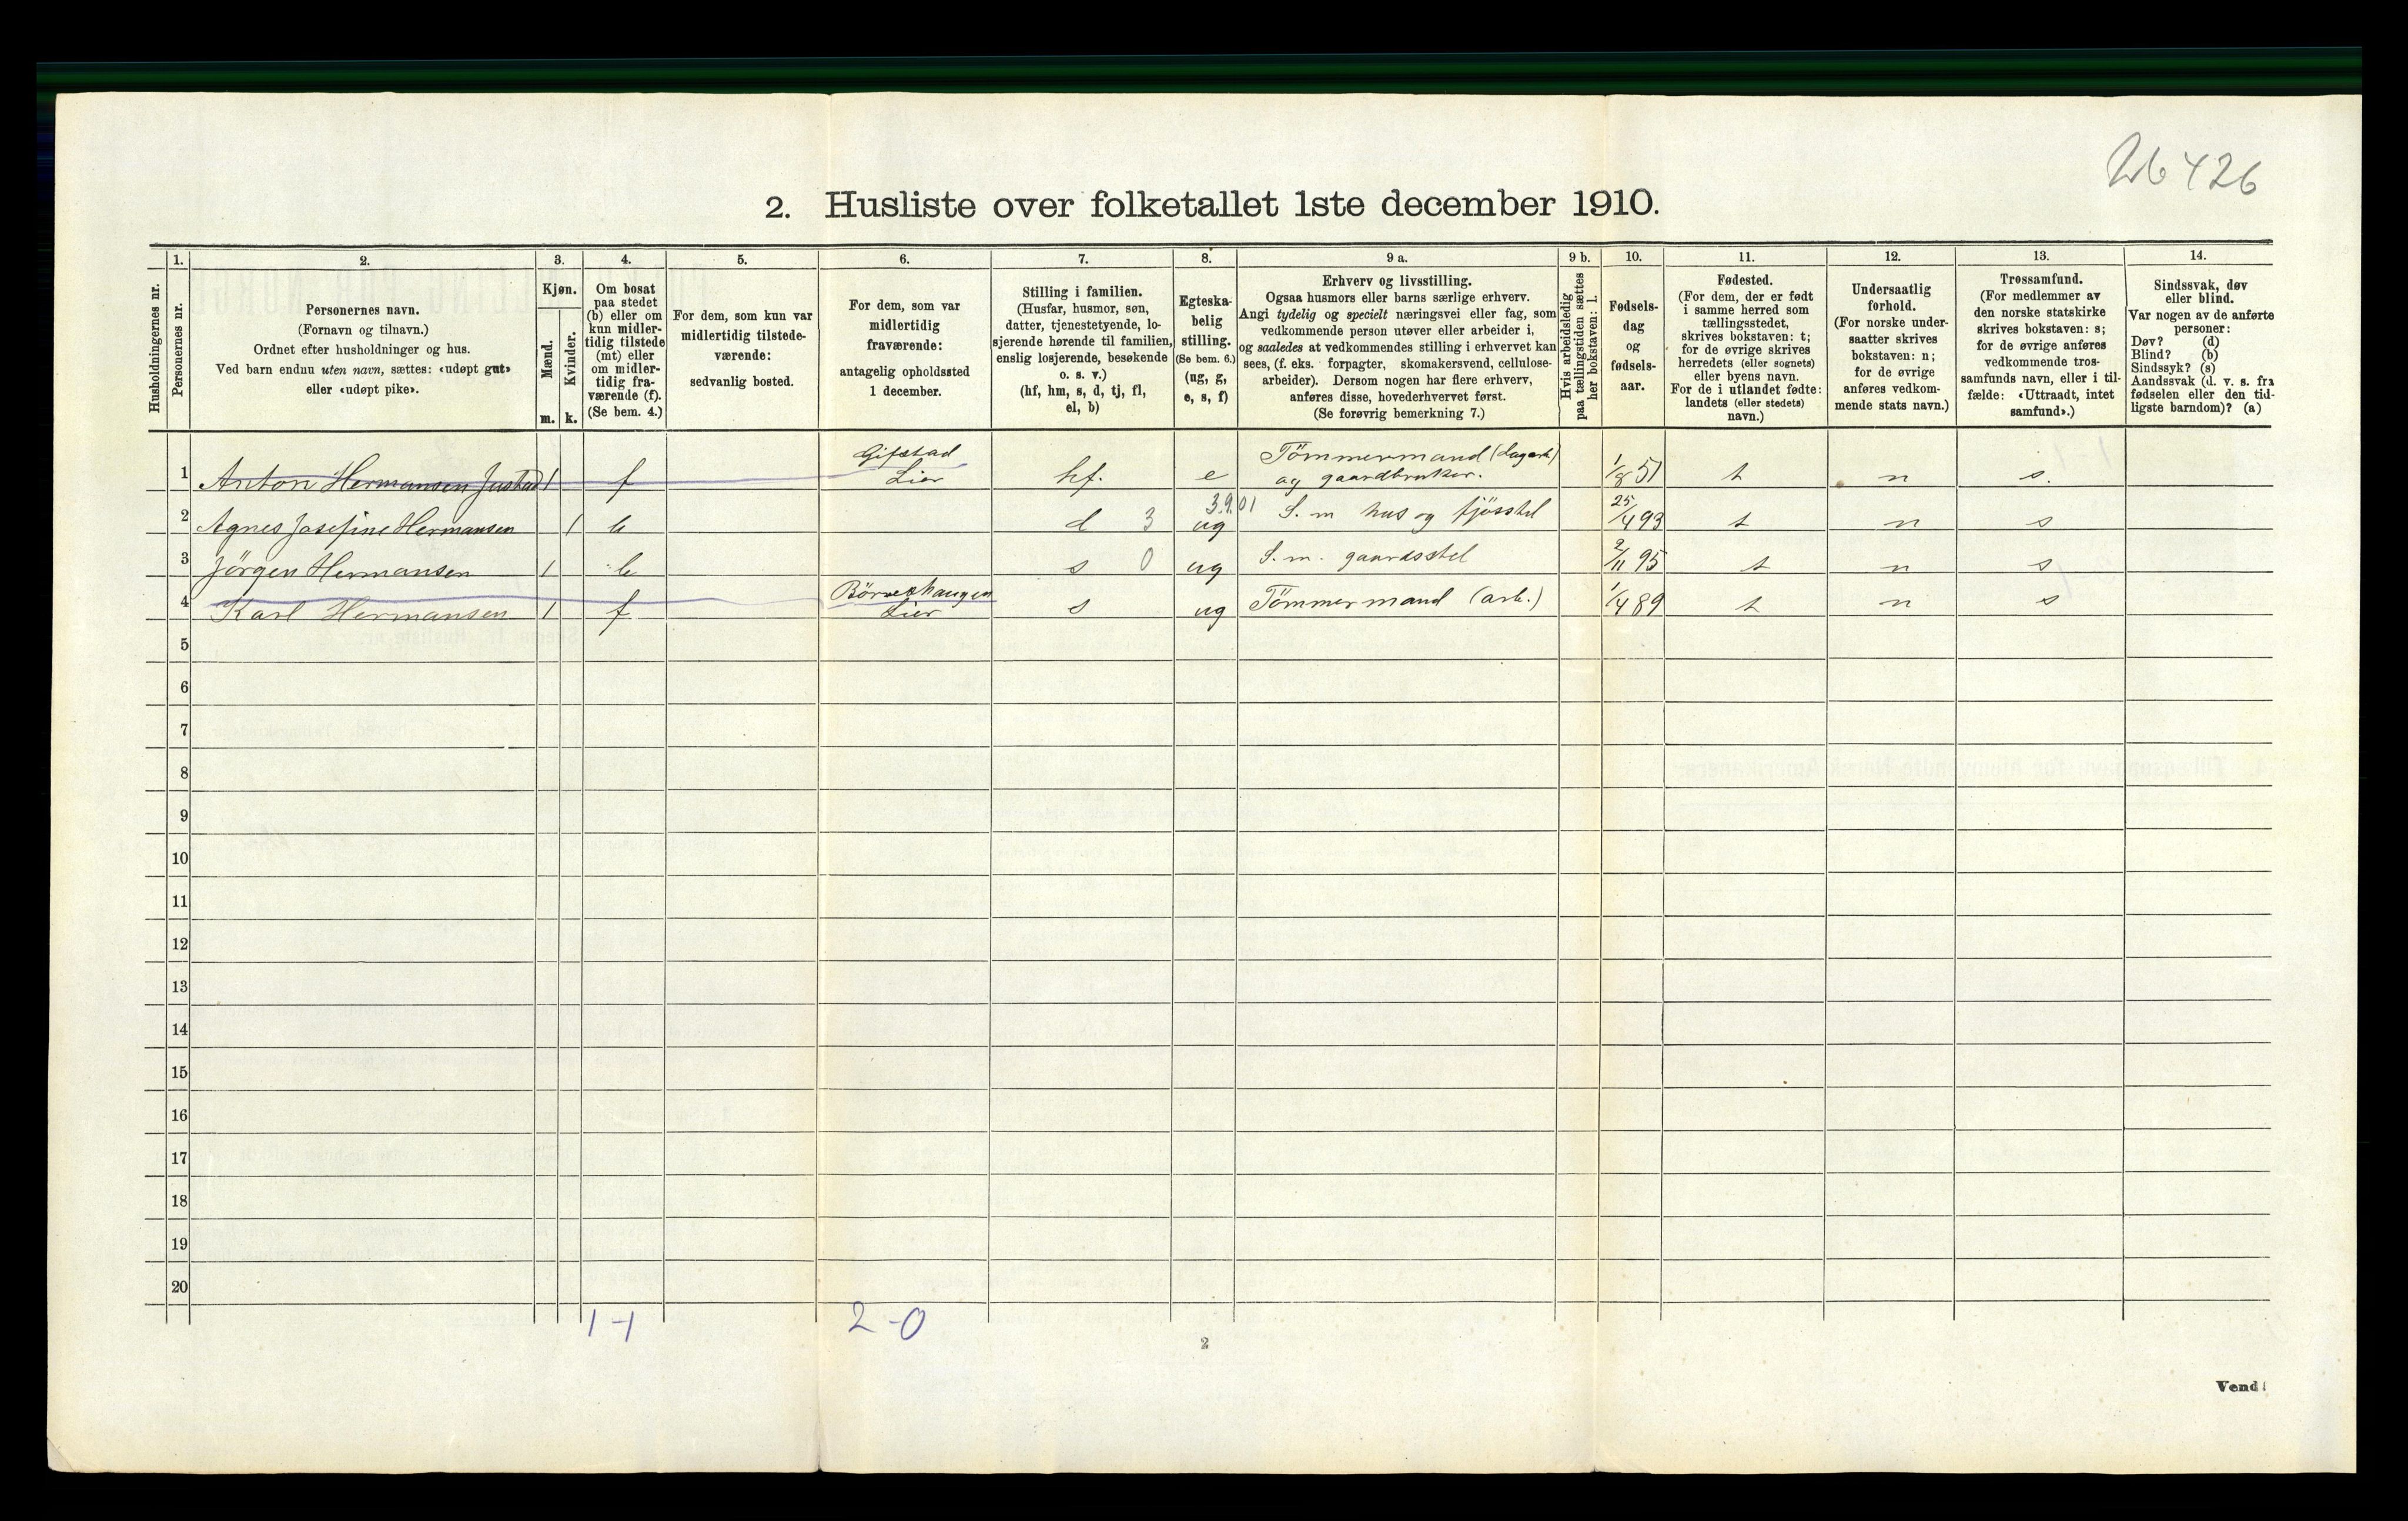 426
2. Husliste over folketallet 1ste december 1910.
1. 2. 3. 4. 5. 6. 7. 8. 9 a. 9 b. 10. 11. 12. 13. 14.
Husholdningernes nr.
Personernes nr.
Personernes navn.
(Fornavn og tilnavn.)
Ordnet efter husholdninger og hus.
Ved barn endnu uten navn, sættes: «udøpt gut»
eller «udøpt pike».
Kjøn.
Mænd.
Kvinder.
m. k.
Om bosat
paa stedet
(b) eller om
kun midler-
tidig tilstede
(mt) eller
om midler-
tidig fra-
værende (f).
(Se bem. 4.)
For dem, som kun var
midlertidig tilstede-
værende:
sedvanlig bosted.
For dem, som var
midlertidig
fraværende:
antagelig opholdssted
1 december.
Stilling i familien.
(Husfar, husmor, søn,
datter, tjenestetyende, lo-
sjerende hørende til familien,
enslig losjerende, besøkende
o. s. v.)
(hf, hm, s, d, tj, fl,
el, b)
Egteska-
belig
stilling.
(Se bem. 6.)
(ug, g,
e, s, f)
Erhverv og livsstilling.
Ogsaa husmors eller barns særlige erhverv.
Angi tydelig og specielt næringsvei eller fag, som
vedkommende person utøver eller arbeider i,
og saaledes at vedkommendes stilling i erhvervet kan
sees, (f. eks. forpagter, skomakersvend, cellulose-
arbeider). Dersom nogen har flere erhverv,
anføres disse, hovederhvervet først.
(Se forøvrig bemerkning 7.)
Hvis arbeidsledig
paa tællingstiden sættes
her bokstaven: l.
Fødsels-
dag
og
fødsels-
aar.
Fødested.
(For dem, der er født
i samme herred som
tællingsstedet,
skrives bokstaven: t;
for de øvrige skrives
herredets (eller sognets)
eller byens navn.
For de i utlandet fødte:
landets (eller stedets)
navn.)
Undersaatlig
forhold.
(For norske under-
saatter skrives
bokstaven: n;
for de øvrige
anføres vedkom-
mende stats navn.)
Trossamfund.
(For medlemmer av
den norske statskirke
skrives bokstaven: s;
for de øvrige anføres
vedkommende tros-
samfunds navn, eller i til-
fælde: «Uttraadt, intet
samfund».)
Sindssvak, døv
eller blind.
Var nogen av de anførte
personer:
Døv? (d)
Blind? (b)
Sindssyk? (s)
Aandssvak (d. v. s. fra
fødselen eller den tid-
ligste barndom)? (a)
1 Anton Hermansen Justad 1 f Gifstad Lier hf. e Tömmermand (dagarb) og gaardbruker. 1/8 51 t n s.
2 Agnes Josefine Hermansen 1 b d 3 3.9.01 ug S. m hus og fjösstel 25/4 93 t n s
3 Jörgen Hermansen 1 b s 0 ug S. m. gaardsstel 2/11 95 t n s
4 Karl Hermansen 1 f Lier s ug Tömmermand (arb.) 1/4 89 t n s
5
6
7
8
9
10
11
12
13
14
15
16
17
18
19
20
1-1 2-0
2
Vend!